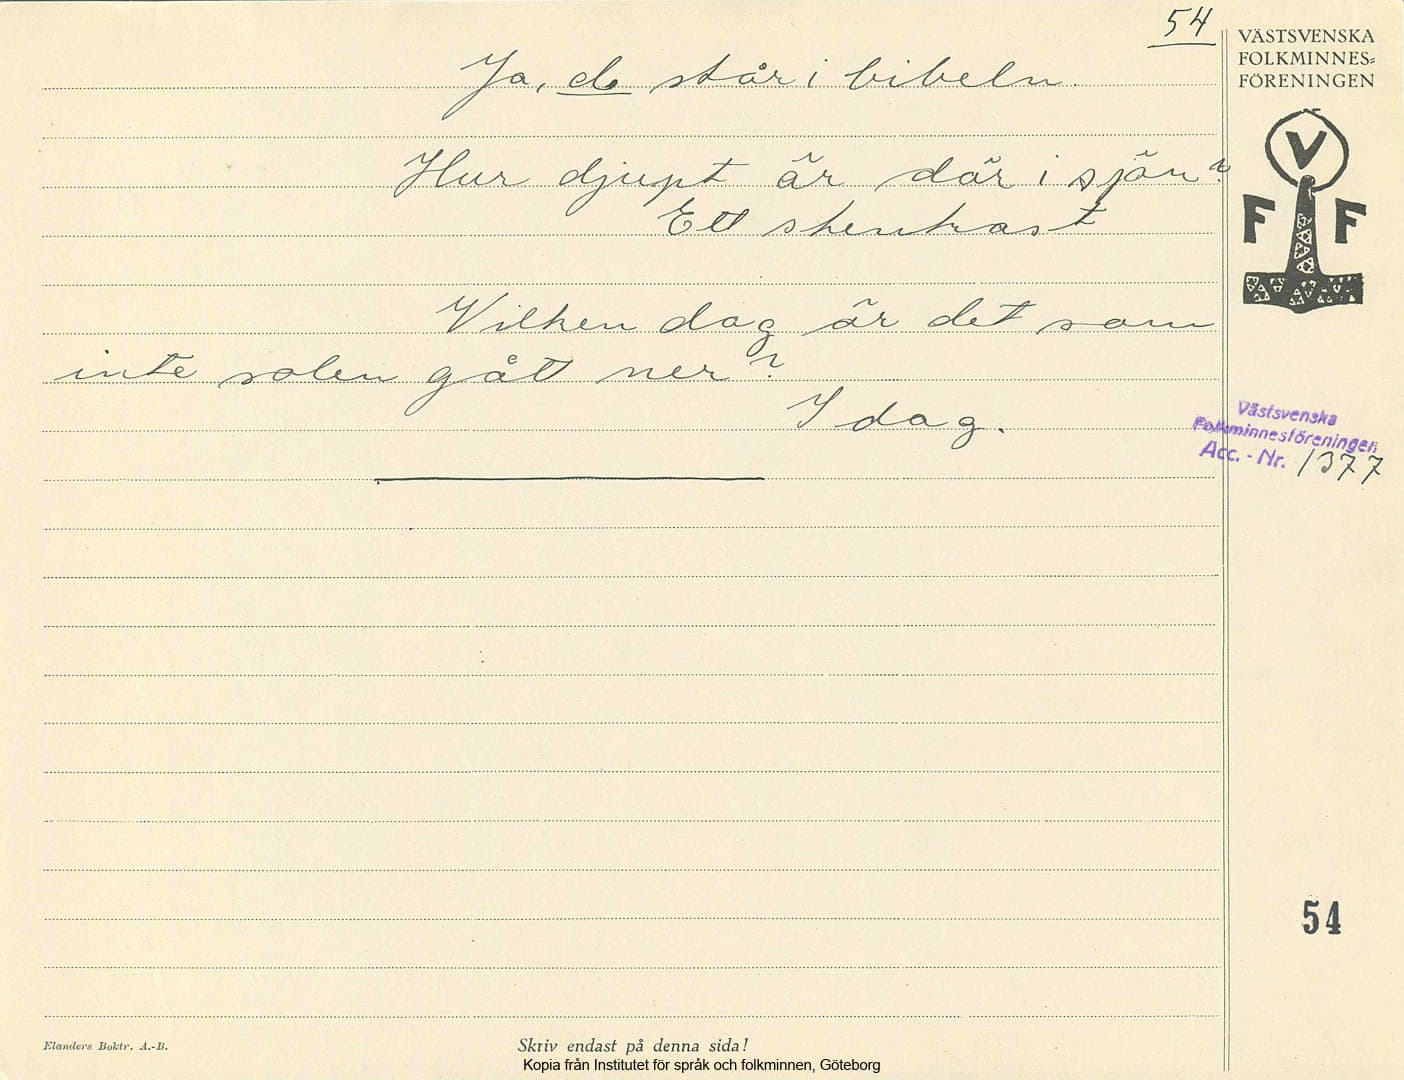 54
Ja, de står i bibeln.
Hur djupt är där i sjön?
Ett stenkast
Vilken dag är det som
inte solen gått ner?
I dag.
VÄSTSVENSKA
FOLKMINNES=
FÖRENINGEN
V
F F
Västsvenska
Folkminnesföreningen
Acc. - Nr. 1377
54
Elanders Boktr. A.-B.
Skriv endast på denna sida!
Kopia från Institutet för språk och folkminnen, Göteborg